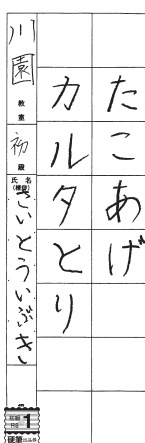 たこあげ
カルタとり
川園教室
初級
氏名
さいとういぶき
1
硬筆